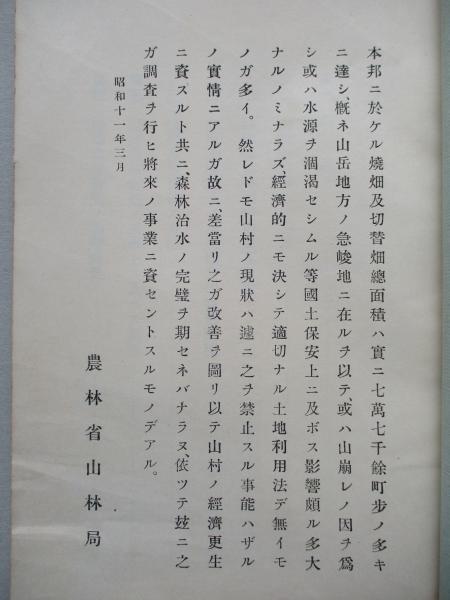 本邦ニ於ケル燒畑及切替畑總面積ハ實ニ七萬七千餘町步ノ多キ
ニ達シ、槪ネ山岳地方ノ急峻地ニ在ルヲ以テ、或ハ山崩レノ因ヲ爲
シ或ハ水源ヲ涸渴セシムル等國土保安上ニ及ボス影響頗ル多大
ナルノミナラズ、經濟的ニモ決シテ適切ナル土地利用法デ無イモ
ノガ多イ。然レドモ山村ノ現狀ハ遽ニ之ヲ禁止スル事能ハザル
ノ實情ニアルガ故ニ、差當リ之ガ改善ヲ圖リ以テ山村ノ經濟更生
ニ資ズルト共ニ、森林治水ノ完璧ヲ期セネバナラヌ、依ツテ玆ニ之
ガ調査ヲ行ヒ將來ノ事業ニ資セントスルモノデアル。
昭和十一年三月
農林省山林局